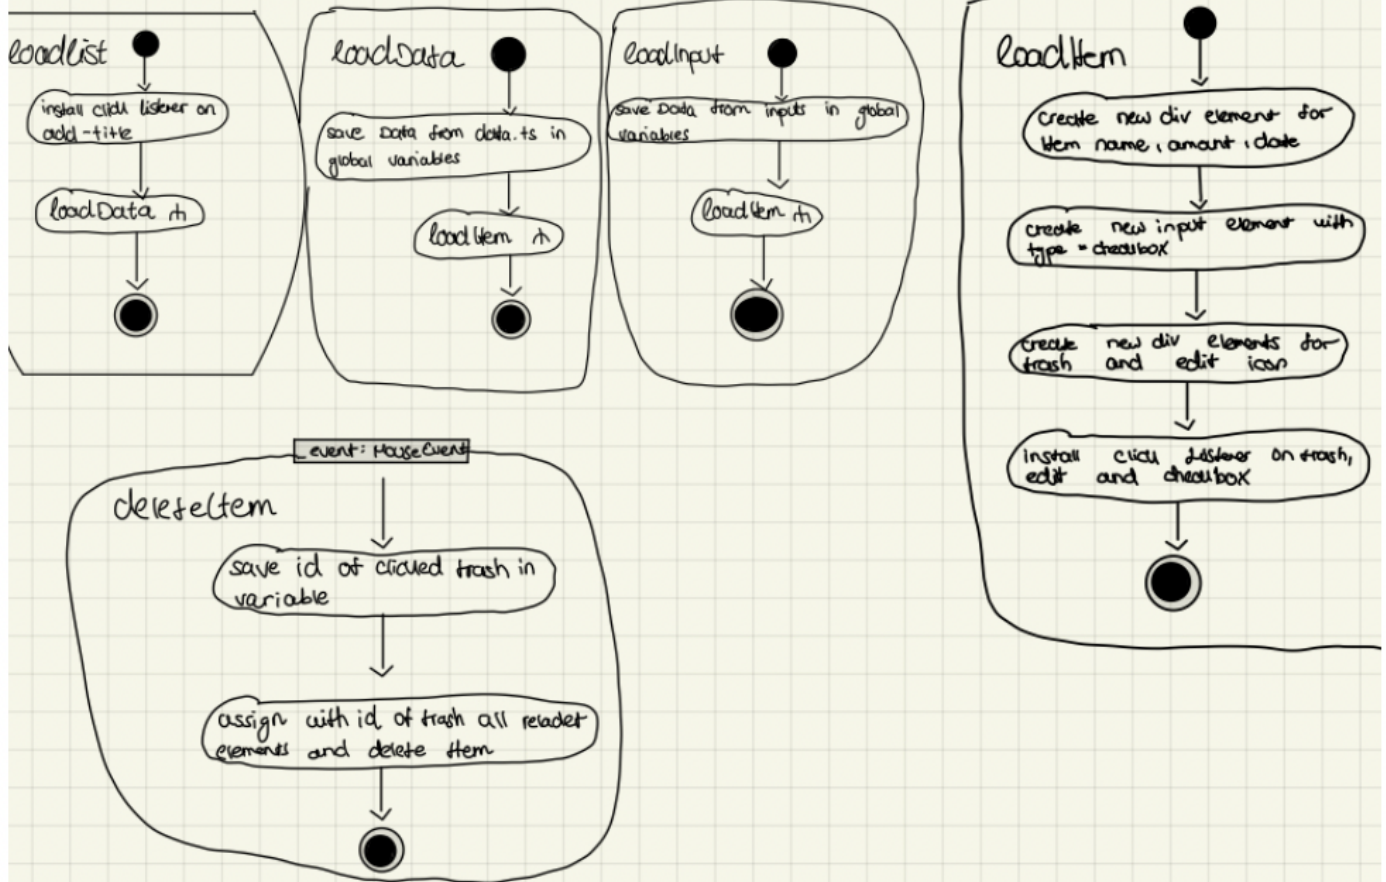 loadlist
install click listener on
add-title
loadData
loadData
save Data from data.ts in
global variables
loadItem
loadInput
save Data from inputs in global
variables
loadItem
loadItem
create new div element for
Item name, amant, date
create new input element with
type = checkbox
create new div elements for
trash and edit icon
install click Listener on trash,
edit and checkbox
_event: MouseEvent
deleteItem
save id of clicked trash in
variable
assign with id of trash all reladet
elements and delete Item